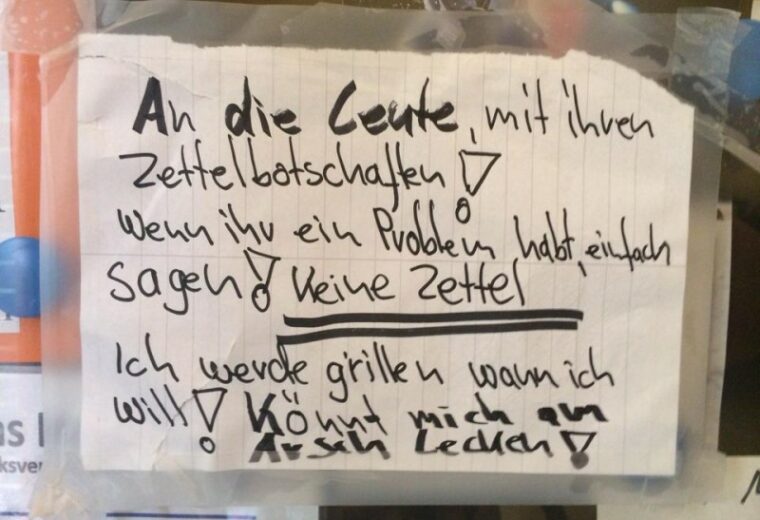 An die Leute, mit ihren
Zettelbotschaften!
wenn ihr ein Problem habt, einfach
sagen! Keine Zettel
Ich werde grillen wann ich
will! Könnt mich am
Arsch Lecken!